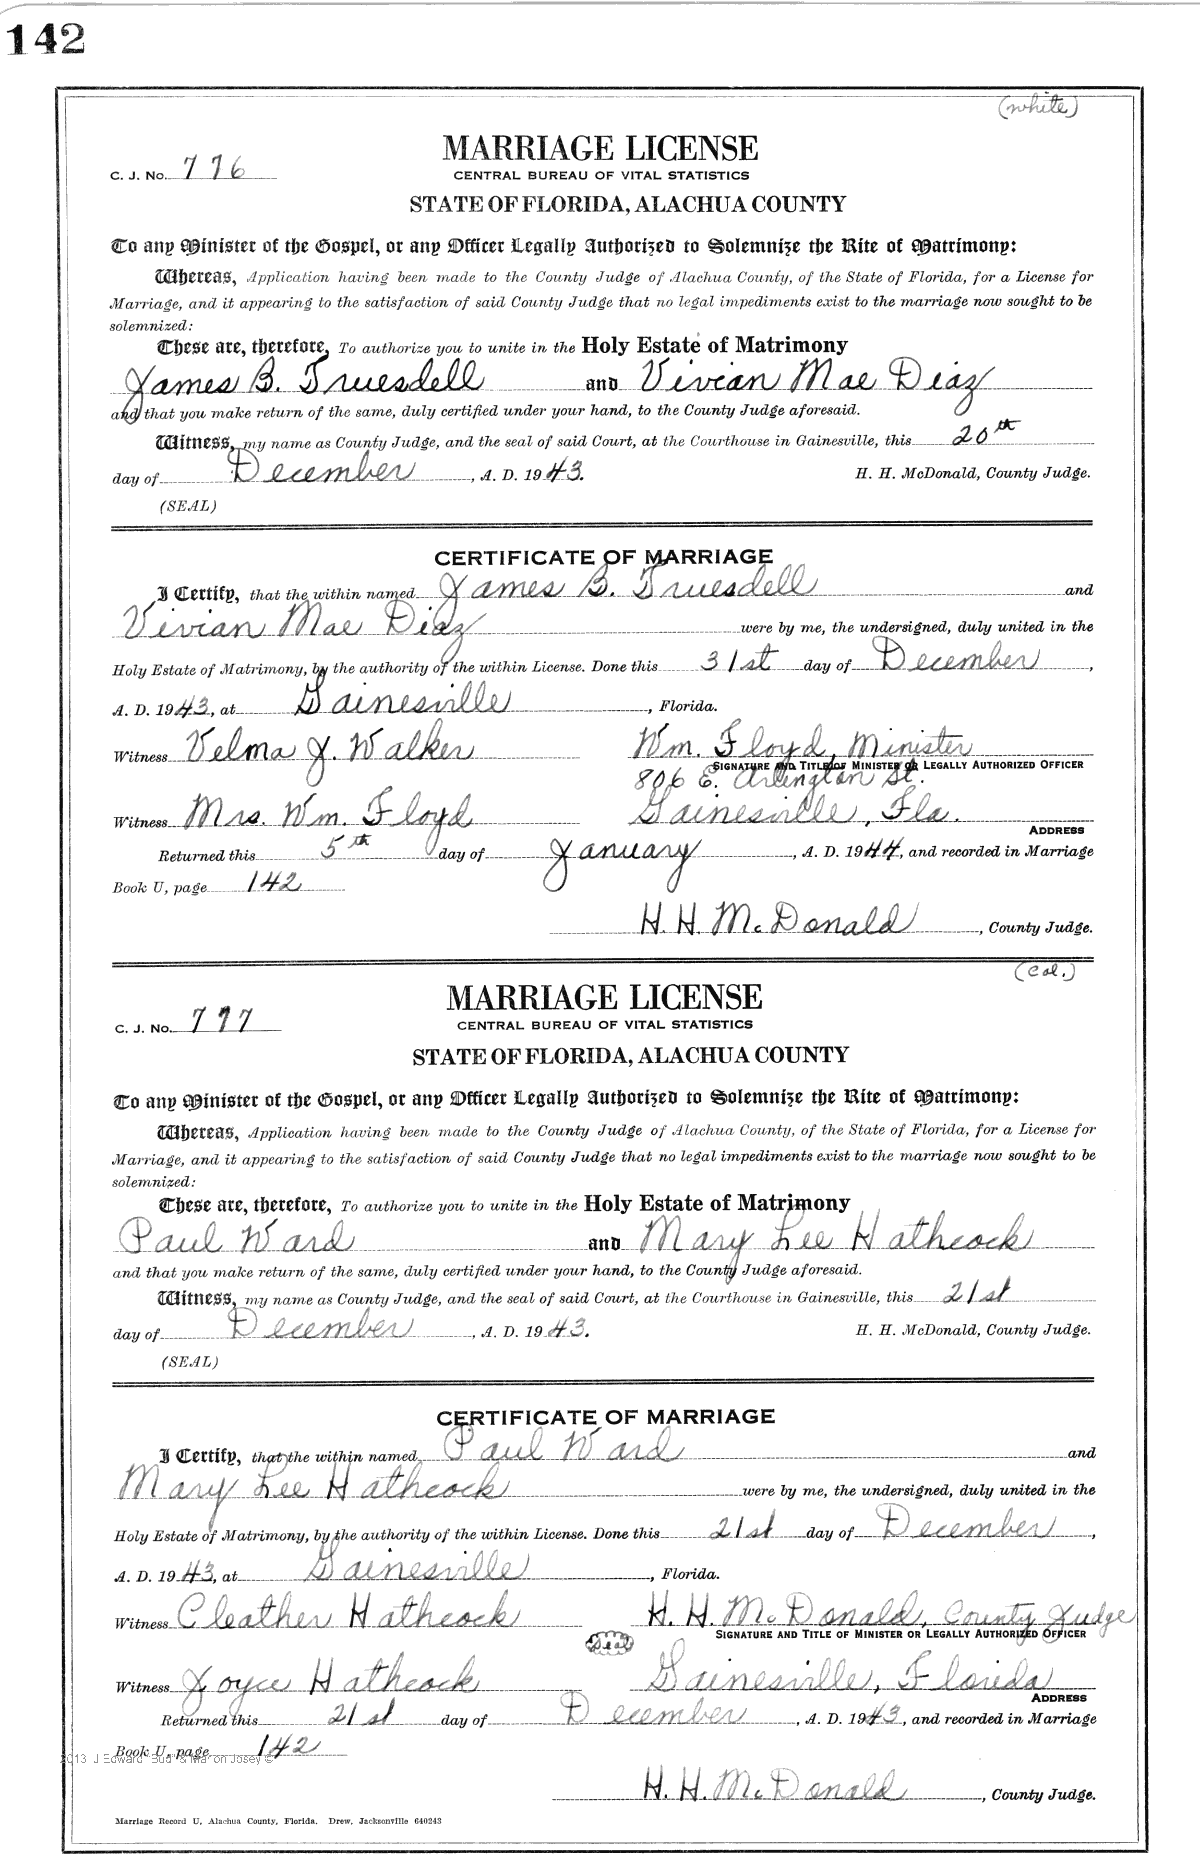 142
(white)
MARRIAGE LICENSE
C. J. No. 776
CENTRAL BUREAU OF VITAL STATISTICS
STATE OF FLORIDA, ALACHUA COUNTY
To any Minister of the Gospel, or any Officer Legally Authorized to Solemnize the Rite of Matrimony:
Whereas, Application having been made to the County Judge of Alachua County, of the State of Florida, for a License for
Marriage, and it appearing to the satisfaction of said County Judge that no legal impediments exist to the marriage now sought to be
solemnized:
These are, therefore, To authorize you to unite in the Holy Estate of Matrimony
James B. Truesdell and Vivian Mae Diaz
and that you make return of the same, duly certified under your hand, to the County Judge aforesaid.
Witness, my name as County Judge, and the seal of said Court, at the Courthouse in Gainesville, this 20th
day of December, A. D. 1943. H. H. McDonald, County Judge.
(SEAL)
CERTIFICATE OF MARRIAGE
I Certify, that the within named James B. Truesdell and
Vivian Mae Diaz were by me, the undersigned, duly united in the
Holy Estate of Matrimony, by the authority of the within License. Done this 31st day of December,
A. D. 1943, at Gainesville, Florida.
Witness Velma J. Walker Wm. Floyd, Minister
SIGNATURE AND TITLE OF MINISTER OR LEGALLY AUTHORIZED OFFICER
806 E. Arlington St.
Witness Mrs. Wm. Floyd Gainesville, Fla.
ADDRESS
Returned this 5th day of January, A. D. 1944, and recorded in Marriage
Book U, page 142
H. H. McDonald, County Judge.
(Col.)
MARRIAGE LICENSE
C. J. No. 777
CENTRAL BUREAU OF VITAL STATISTICS
STATE OF FLORIDA, ALACHUA COUNTY
To any Minister of the Gospel, or any Officer Legally Authorized to Solemnize the Rite of Matrimony:
Whereas, Application having been made to the County Judge of Alachua County, of the State of Florida, for a License for
Marriage, and it appearing to the satisfaction of said County Judge that no legal impediments exist to the marriage now sought to be
solemnized:
These are, therefore, To authorize you to unite in the Holy Estate of Matrimony
Paul Ward and Mary Lee Hathcock
and that you make return of the same, duly certified under your hand, to the County Judge aforesaid.
Witness, my name as County Judge, and the seal of said Court, at the Courthouse in Gainesville, this 21st
day of December, A. D. 1943. H. H. McDonald, County Judge.
(SEAL)
CERTIFICATE OF MARRIAGE
I Certify, that the within named Paul Ward and
Mary Lee Hathcock were by me, the undersigned, duly united in the
Holy Estate of Matrimony, by the authority of the within License. Done this 21st day of December,
A. D. 1943, at Gainesville, Florida.
Witness Cleather Hathcock H. H. McDonald, County Judge
SIGNATURE AND TITLE OF MINISTER OR LEGALLY AUTHORIZED OFFICER
Seal
Witness Joyce Hathcock Gainesville, Florida
ADDRESS
Returned this 21st day of December, A. D. 1943, and recorded in Marriage
Book U, page 142
2013 J Edward "Bud" & Marion Josey ©
H. H. McDonald, County Judge.
Marriage Record U, Alachua County, Florida. Drew, Jacksonville 640243